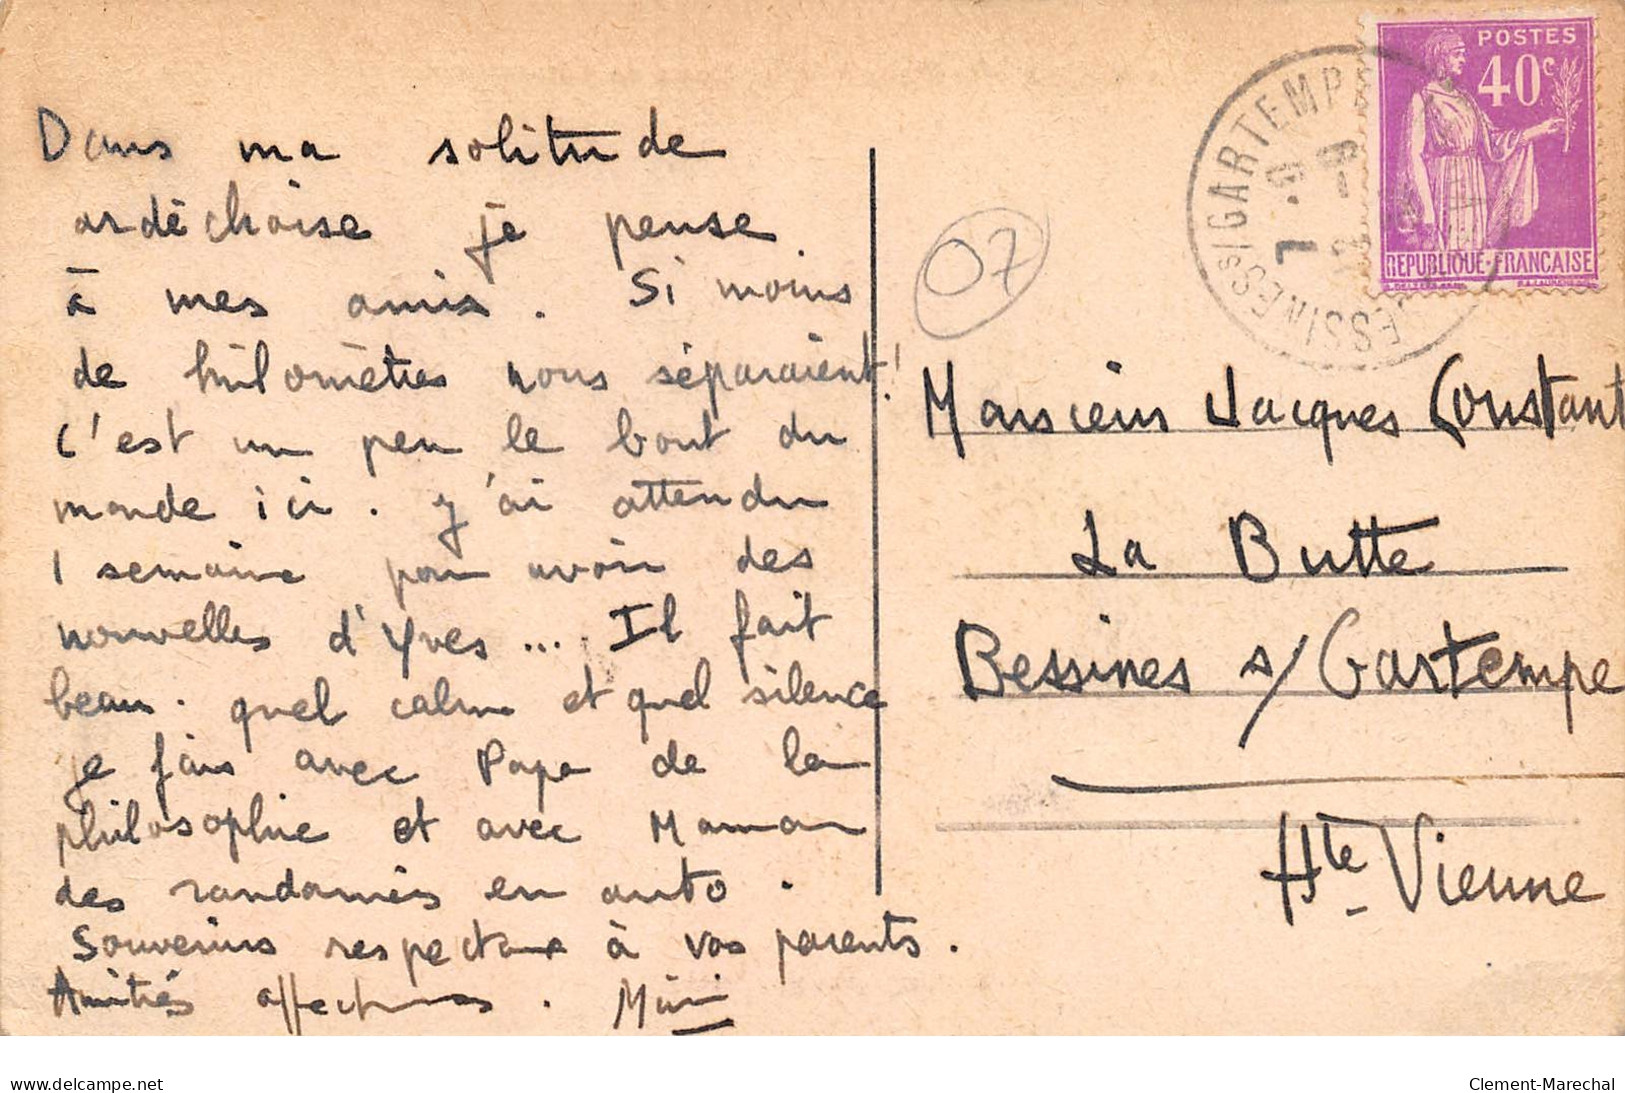 Dans ma solitude
ardéchoise je pense
à mes amis. Si moins
de kilomètres nous séparaient!
C'est un peu le bout du
monde ici. J'ai attendu
1 semaine pour avoir des
nouvelles d'Yves... Il fait
beau. quel calme et quel silence
je fais avec Papa de la
philosophie et avec Maman
des randonnées en auto.
Souvenirs respectueux à vos parents.
Amitiés affectueuses.
07
POSTES
40c
REPUBLIQUE-FRANÇAISE
GARTEMP
Monsieur Jacques Constant
La Butte
Bessines s/ Gartempe
Hte Vienne
delcampe.net
Clement-Marechal